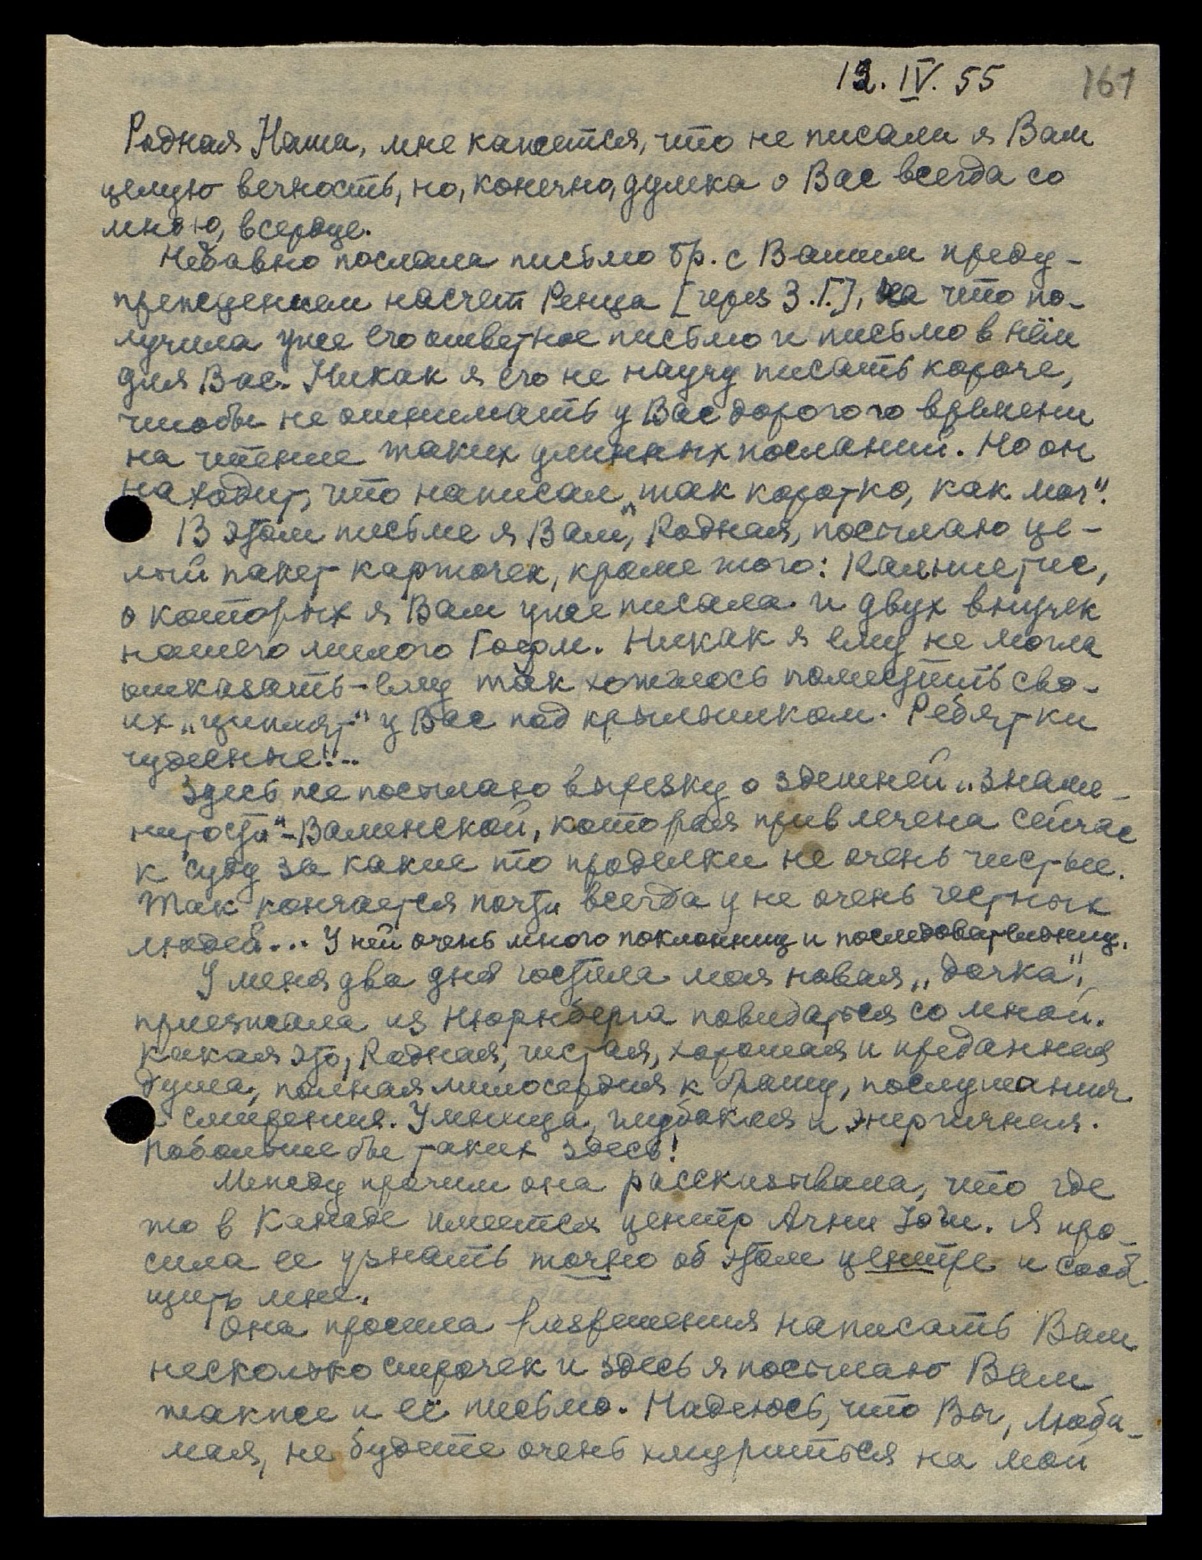 12. IV. 55 161
Родная Наша, мне кажется, что не писала я Вам
целую вечность, но, конечно, думка о Вас всегда со
мною, в сердце.
Недавно послала письмо бр. с Вашим преду-
преждением насчет Ренца [через З.Г.], на что по-
лучила уже его ответное письмо и письмо в нём
для Вас. Никак я его не научу писать короче,
чтобы не отнимать у Вас дорогого времени
на чтение таких длинных посланий. Но он
находит, что написал „так коротко, как мог".
В этом письме я Вам, Родная, посылаю це-
лый пакет карточек, кроме того:
о которых я Вам уже писала и двух внучек
нашего милого Гофм. Никак я ему не могла
отказать - ему так хотелось поместить сво-
их „циплят" у Вас под крылышком. Ребятки
чудесные!..
Здесь же посылаю вырезку о здешней „знаме-
нитости" - Валенской, которая привлечена сейчас
к суду за какие то проделки не очень чистые.
Так кончается почти всегда у не очень честных
людей... У ней очень много поклонниц и последовательниц.
У меня два дня гостила моя новая „дочка",
приезжала из Нюрнберга повидаться со мной.
Какая это, Родная, чистая, хорошая и преданная
душа, полная милосердия к брату, послушания
смирения. Умница, глубокая и энергичная.
Побольше бы таких здесь!
Между прочим она рассказывала, что где
то в Канаде имеется центр Агни Йоги. Я про-
сила ее узнать точно об этом центре и сооб-
щить мне.
Она просила разрешения написать Вам
несколько строчек и здесь я посылаю Вам
также и её письмо. Надеюсь, что Вы, Люби-
мая, не будете очень хмуриться на мой